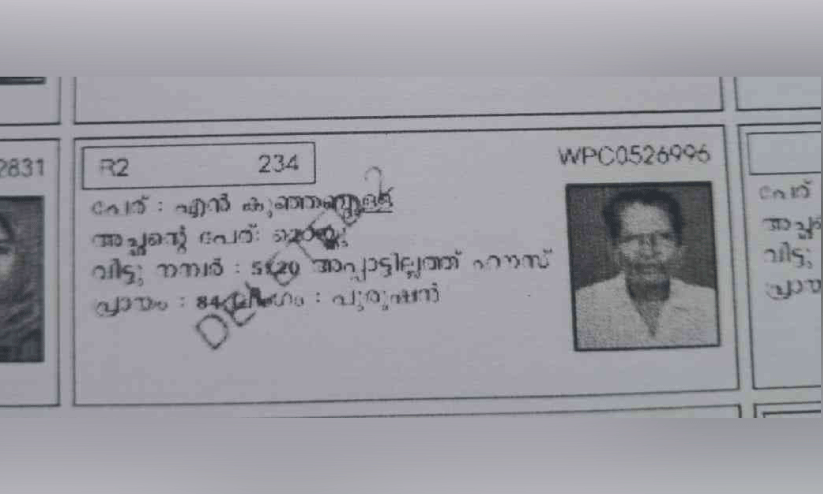 2831
R2 234 WPC0526996
പേര് : എൻ കുഞ്ഞബ്ദുള്ള
അച്ഛന്റെ പേര്:
വീട്ടു നമ്പർ : 51/20 അപ്പാട്ടില്ലത്ത് ഹൗസ്
പ്രായം : 84 ലിംഗം : പുരുഷൻ
DELETED
പേര്
വീട്ടു